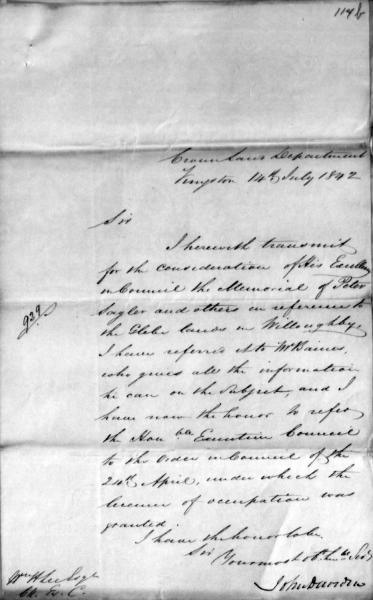 114 b
Crown Lands Department
Kingston 14th July 1842
Sir
I herewith transmit
for the consideration of His Excellency
in Council the Memorial of Peter
and others in reference to
the Glebe lands in Willoughby,
I have referred it to Mr Baines,
who gives all the information
he can on the subject, and I
have now the honor to refer
the Honble Executive Council
to the Order in Council of the
24th April, under which the
licence of occupation was
granted
I have the honor to be
Sir
Your most Obt
John Davidson
Wm H Lee Esqr